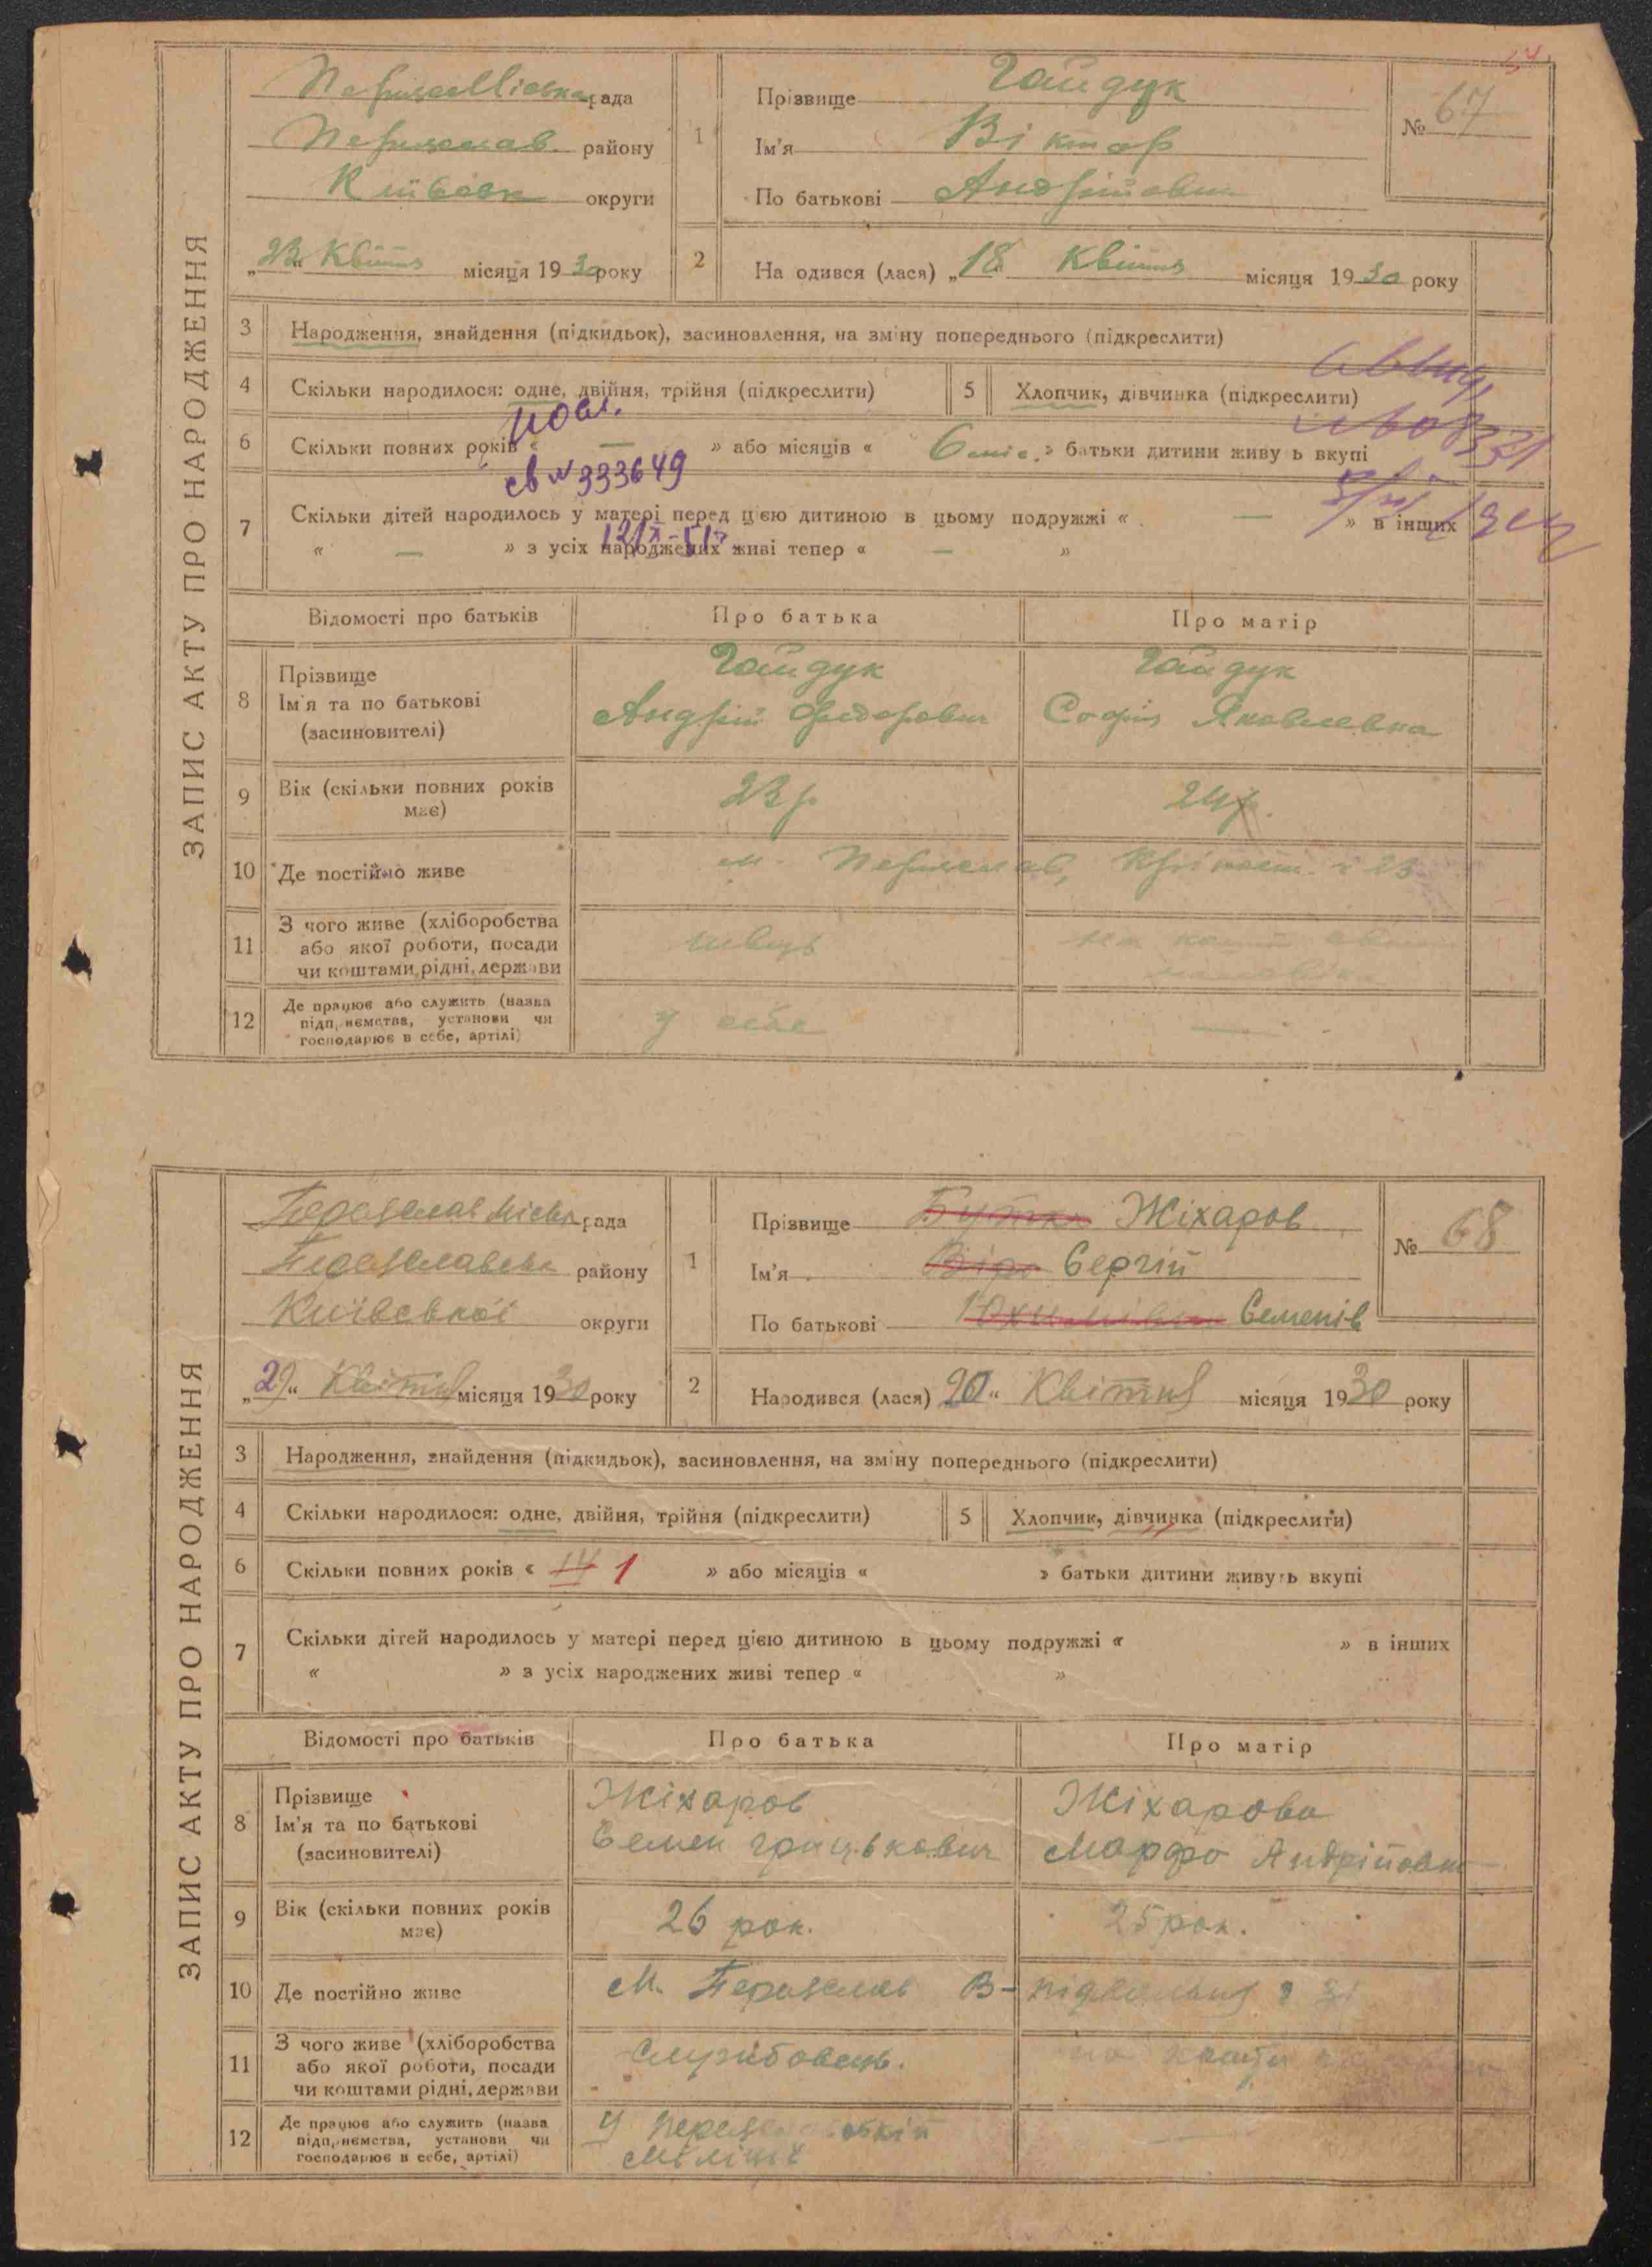 ЗАПИС АКТУ ПРО НАРОДЖЕННЯ
рада
району
округи
„23“ Квітня місяця 1930 року
1
Прізвище Гайдук
Ім'я Віктор
По батькові Андрійович
№ 67
2
На одився (лася) „18“ Квітня місяця 1930 року
3 Народження, знайдення (підкидьок), засиновлення, на зміну попереднього (підкреслити)
4 Скільки народилося: одне, двійня, трійня (підкреслити)
5 Хлопчик, дівчинка (підкреслити)
6 Скільки повних років « — » або місяців « 6 міс. » батьки дитини живу ь вкупі
св № 333649
7 Скільки дітей народилось у матері перед цією дитиною в цьому подружжі « — » в інших
« — » з усіх народжених живі тепер « — »
Відомості про батьків
Про батька
Про матір
8 Прізвище
Ім'я та по батькові
(засиновителі)
Гайдук
Андрій Федорович
Гайдук
Софія Яковлевна
9 Вік (скільки повних років має)
23 р
24 р.
10 Де постійно живе
м. Переяслав,
11 З чого живе (хліборобства
або якої роботи, посади
чи коштами рідні, держави
швець
12 Де працює або служить (назва
підприємства, установи чи
господарює в себе, артілі)
у себе
—
ЗАПИС АКТУ ПРО НАРОДЖЕННЯ
рада
району
Київської округи
„29“ Квітня місяця 1930 року
1
Прізвище Бутко Жіхаров
Ім'я Віра Сергій
По батькові Юхимівна Семенів
№ 68
2
Народився (лася) „20“ Квітня місяця 1930 року
3 Народження, знайдення (підкидьок), засиновлення, на зміну попереднього (підкреслити)
4 Скільки народилося: одне, двійня, трійня (підкреслити)
5 Хлопчик, дівчинка (підкреслити)
6 Скільки повних років « 1 » або місяців « » батьки дитини живуть вкупі
7 Скільки дітей народилось у матері перед цією дитиною в цьому подружжі « » в інших
« » з усіх народжених живі тепер « »
Відомості про батьків
Про батька
Про матір
8 Прізвище
Ім'я та по батькові
(засиновителі)
Жіхаров
Семен Грицькович
Жіхарова
Марфа Андріївна
9 Вік (скільки повних років має)
26 рок.
25 рок.
10 Де постійно живе
м. Переяслав В-підвальна
11 З чого живе (хліборобства
або якої роботи, посади
чи коштами рідні, держави
Службовець.
12 Де працює або служить (назва
підприємства, установи чи
господарює в себе, артілі)
У Переяславській
міліції
—